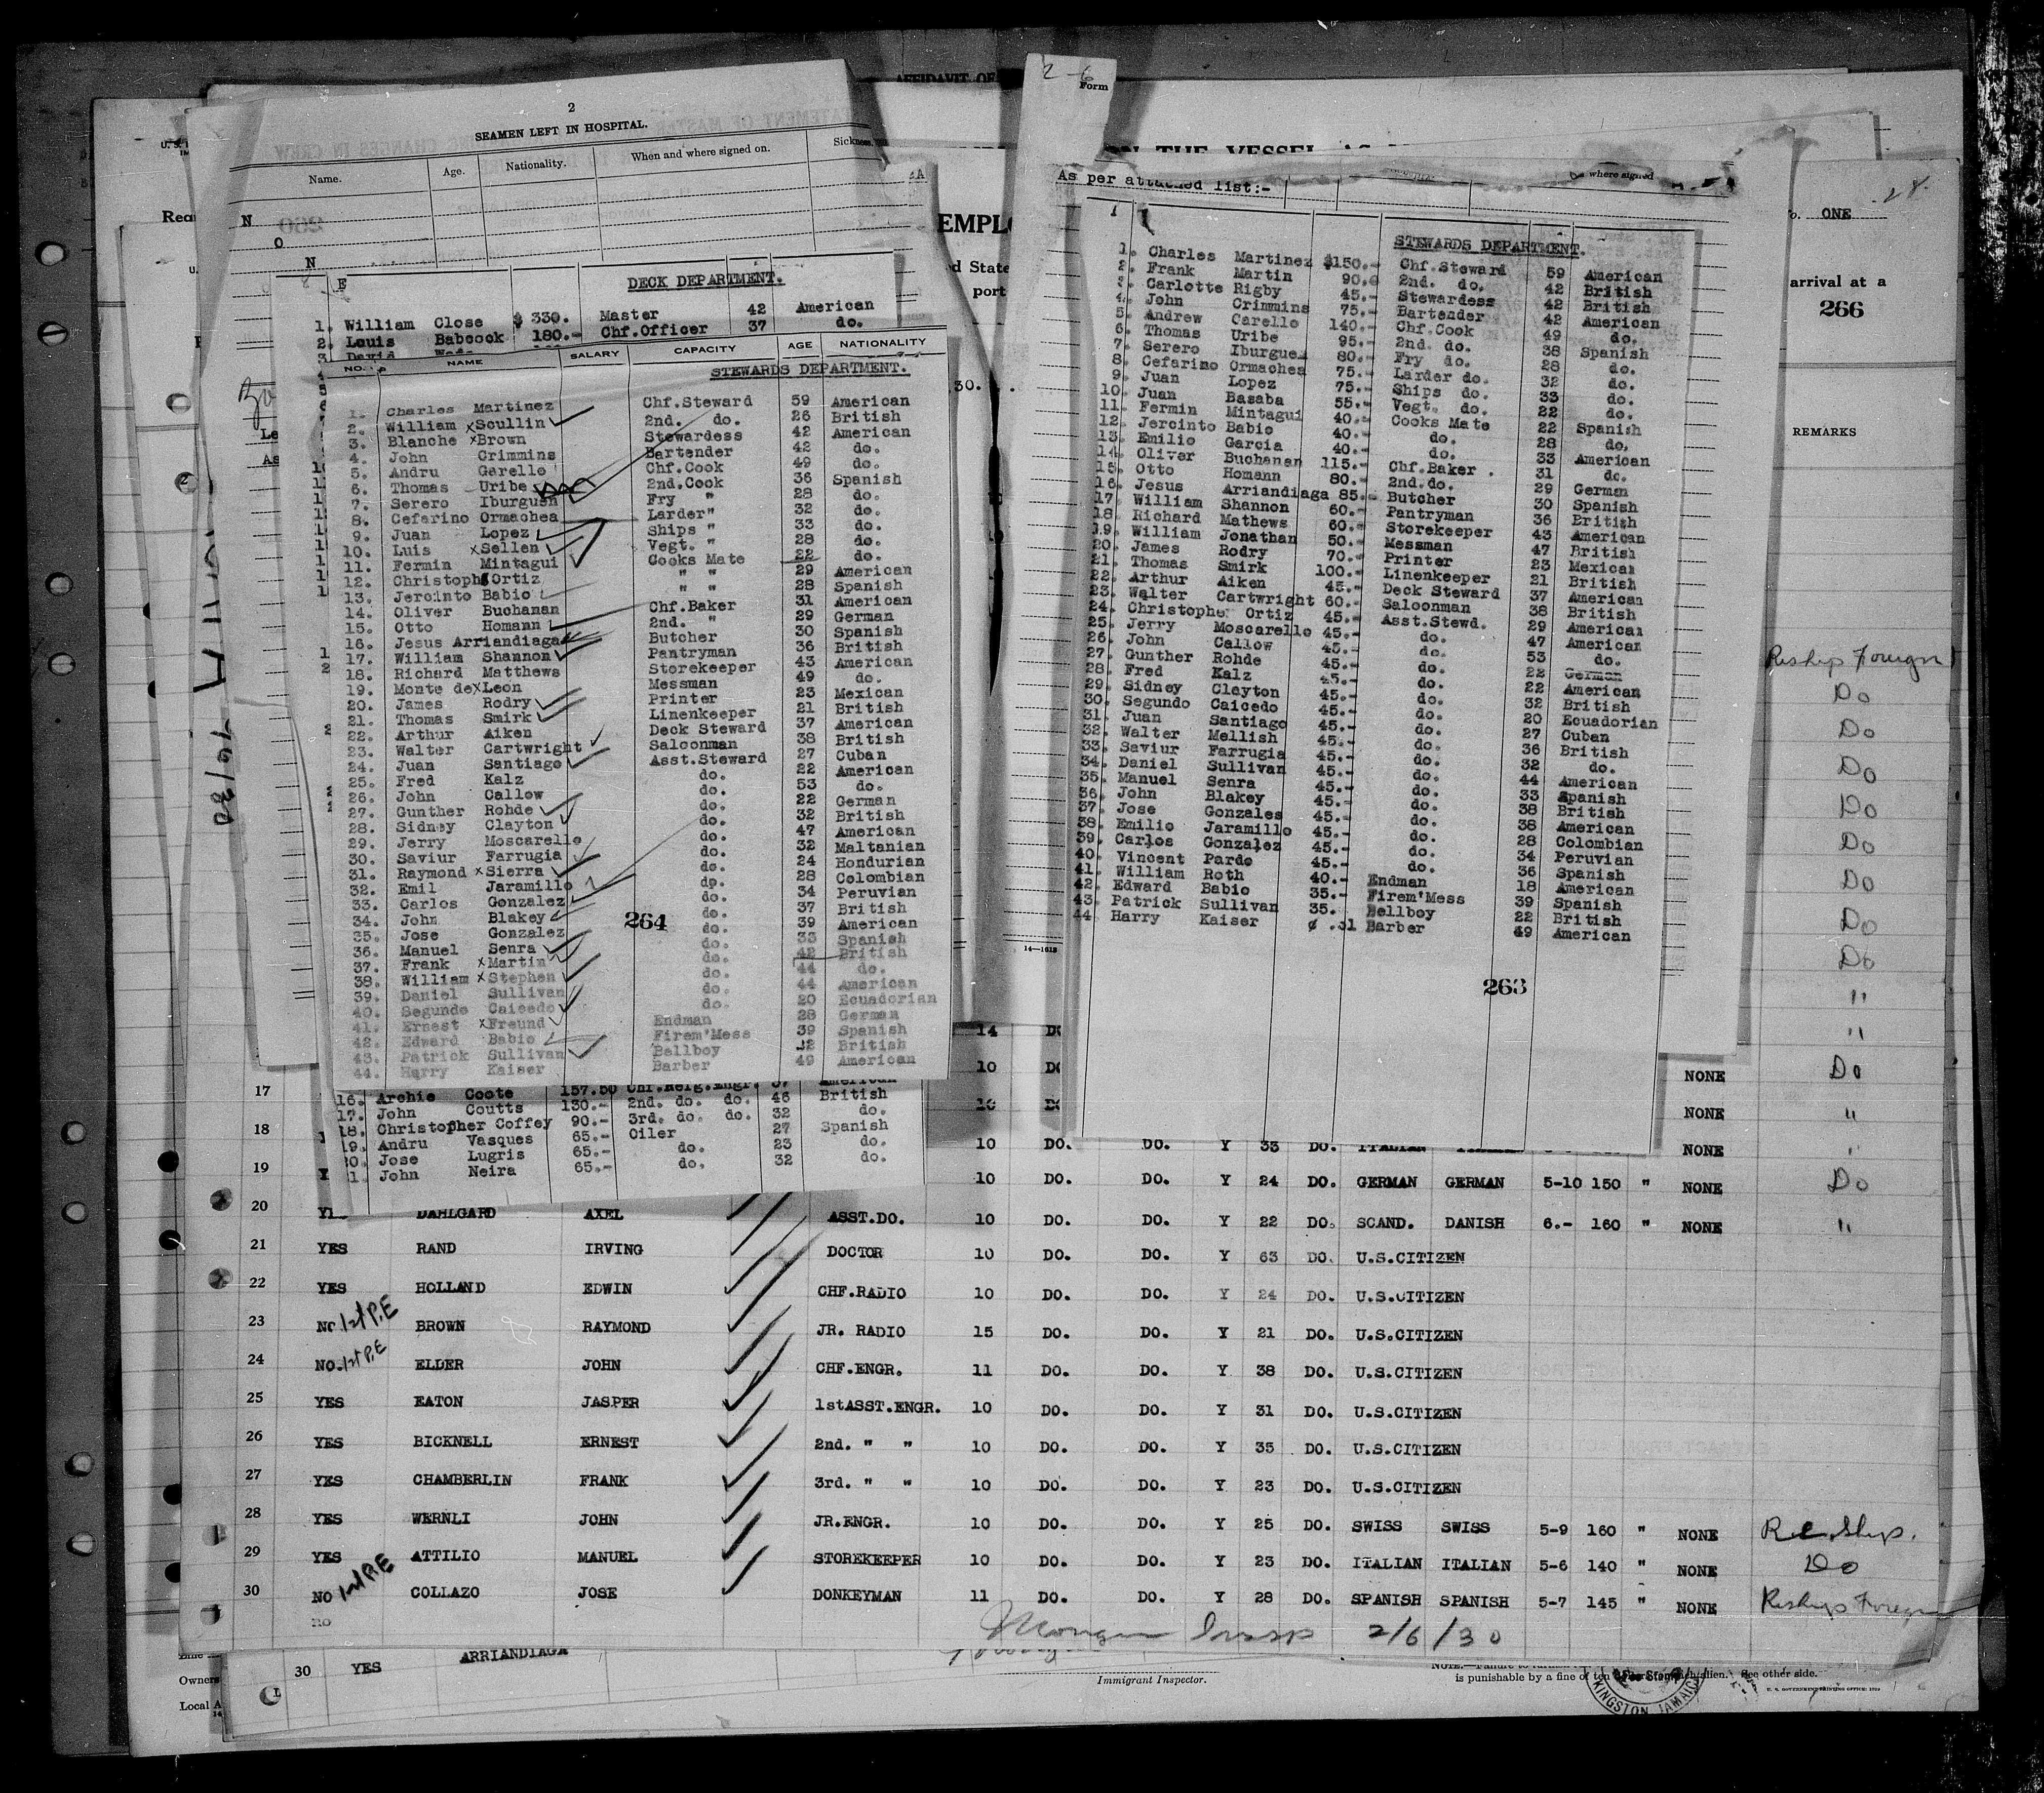 2
SEAMEN LEFT IN HOSPITAL.
Name. Age. Nationality. When and where signed on. Sickness.
N
O
N
E
DECK DEPARTMENT.
1. William Close $ 330. Master 42 American
2. Louis Babcock 180.- Chf.Officer 37 do.
3. David
NO. NAME SALARY CAPACITY AGE NATIONALITY
STEWARDS DEPARTMENT.
1. Charles Martinez Chf.Steward 59 American
2. William x Scullin 2nd. do. 26 British
3. Blanche x Brown Stewardess 42 American
4. John Crimmins Bartender 42 do.
5. Andru Garello Chf.Cook 49 do.
6. Thomas Uribe 2nd.Cook 36 Spanish
7. Serero Iburgusn Fry " 28 do.
8. Cefarino Ormachea Larder" 32 do.
9. Juan Lopez Ships " 33 do.
10. Luis x Sellen Vegt. " 28 do.
11. Fermin Mintagui Cooks Mate 22 do.
12. Christoph Ortiz " " 29 American
13. Jercinto Babio " " 28 Spanish
14. Oliver Buchanan Chf.Baker 31 American
15. Otto Homann 2nd. " 29 German
16. Jesus Arriandiaga Butcher 30 Spanish
17. William Shannon Pantryman 36 British
18. Richard Matthews Storekeeper 43 American
19. Monte de x Leon Messman 49 do.
20. James Rodry Printer 23 Mexican
21. Thomas Smirk Linenkeeper 21 British
22. Arthur Aiken Deck Steward 37 American
23. Walter Cartwright Saloonman 38 British
24. Juan Santiago Asst.Steward 27 Cuban
25. Fred Kalz do. 22 American
26. John Callow do. 53 do.
27. Gunther Rohde do. 22 German
28. Sidney Clayton do. 32 British
29. Jerry Moscarello do. 47 American
30. Saviur Farrugia do. 32 Maltanian
31. Raymond x Sierra do. 24 Hondurian
32. Emil Jaramillo do. 28 Colombian
33. Carlos Gonzalez do. 34 Peruvian
34. John Blakey do. 37 British
35. Jose Gonzalez do. 39 American
36. Manuel Senra do. 33 Spanish
37. Frank x Martin do. 42 British
38. William x Stephen do. 44 do.
39. Daniel Sullivan do. 44 American
40. Segundo Caicedo do. 20 Ecuadorian
41. Ernest x Freund Endman 28 German
42. Edward Babio Firem'Mess 39 Spanish
43. Patrick Sullivan Bellboy 22 British
44. Harry Kaiser Barber 49 American
264
16. Archie Coote 157.50 Chf.Refg.Engr. 37 American
17. John Coutts 130.- 2nd. do. do. 46 British
18. Christopher Coffey 90.- 3rd. do. do. 32 do.
19. Andru Vasques 65.- Oiler 27 Spanish
20. Jose Lugris 65.- do. 23 do.
21. John Neira 65.- do. 32 do.
2-6
Form
As per attached list:-
where signed
STEWARDS DEPARTMENT.
1. Charles Martinez $150.- Chf.Steward 59 American
2. Frank Martin 90.- 2nd. do. 42 British
3. Carlotte Rigby 45.- Stewardess 42 British
4. John Crimmins 75.- Bartender 42 American
5. Andrew Carello 140.- Chf.Cook 49 do.
6. Thomas Uribe 95.- 2nd. do. 38 Spanish
7. Serero Iburgues 80.- Fry do. 28 do.
8. Cefarino Ormachea 75.- Larder do. 32 do.
9. Juan Lopez 75.- Ships do. 33 do.
10. Juan Basaba 55.- Vegt. do. 22 do.
11. Fermin Mintagui 40.- Cooks Mate 22 Spanish
12. Jercinto Babio 40.- do. 28 do.
13. Emilio Garcia 40.- do. 33 American
14. Oliver Buchanan 115.- Chf.Baker . 31 do.
15. Otto Homann 80.- 2nd.do. 29 German
16. Jesus Arriandiaga 85.- Butcher 30 Spanish
17. William Shannon 60.- Pantryman 36 British
18. Richard Mathews 60.- Storekeeper 43 American
19. William Jonathan 50.- Messman 47 British
20. James Rodry 70.- Printer 23 Mexican
21. Thomas Smirk 100.- Linenkeeper 21 British
22. Arthur Aiken 45.- Deck Steward 37 American
23. Walter Cartwright 60.- Saloonman 38 British
24. Christopher Ortiz 45.- Asst.Stewd. 29 American
25. Jerry Moscarello 45.- do. 47 American
26. John Callow 45.- do. 53 do.
27. Gunther Rohde 45.- do. 22 German
28. Fred Kalz 45.- do. 22 American
29. Sidney Clayton 45.- do. 32 British
30. Segundo Caicedo 45.- do. 20 Ecuadorian
31. Juan Santiago 45.- do. 27 Cuban
32. Walter Mellish 45.- do. 36 British
33. Saviur Farrugia 45.- do. 32 do.
34. Daniel Sullivan 45.- do. 44 American
35. Manuel Senra 45.- do. 33 Spanish
36. John Blakey 45.- do. 38 British
37. Jose Gonzales 45.- do. 38 American
38. Emilio Jaramillo 45.- do. 28 Colombian
39. Carlos Gonzalez 45.- do. 34 Peruvian
40. Vincent Pardo 45.- do. 36 Spanish
41. William Roth 40.- Endman 18 American
42. Edward Babio 35.- Firem'Mess 39 Spanish
43. Patrick Sullivan 35. Bellboy 22 British
44. Harry Kaiser ¢ .01 Barber 49 American
263
EMPLO
d State
port
ONE
arrival at a
266
REMARKS
Reship Foreign
Do
Do
Do
Do
Do
Do
Do
Do
"
"
14
17 10 NONE Do
18 NONE "
10 DO. DO. Y 33 DO. ITALIAN NONE "
19 10 DO. DO. Y 24 DO. GERMAN GERMAN 5-10 150 " NONE Do
20 DAHLGARD AXEL ASST.DO. 10 DO. DO. Y 22 DO. SCAND. DANISH 6.- 160 " NONE "
21 YES RAND IRVING DOCTOR 10 DO. DO. Y 63 DO. U.S.CITIZEN
22 YES HOLLAND EDWIN CHF.RADIO 10 DO. DO. Y 24 DO. U.S.CITIZEN
23 NO 1st P.E BROWN RAYMOND JR. RADIO 15 DO. DO. Y 21 DO. U.S.CITIZEN
24 NO. 1st P.E ELDER JOHN CHF.ENGR. 11 DO. DO. Y 38 DO. U.S.CITIZEN
25 YES EATON JASPER 1stASST.ENGR. 10 DO. DO. Y 31 DO. U.S.CITIZEN
26 YES BICKNELL ERNEST 2nd. " " 10 DO. DO. Y 35 DO. U.S.CITIZEN
27 YES CHAMBERLIN FRANK 3rd. " " 10 DO. DO. Y 23 DO. U.S.CITIZEN
28 YES WERNLI JOHN JR.ENGR. 10 DO. DO. Y 25 DO. SWISS SWISS 5-9 160 " NONE Re Ship.
29 YES ATTILIO MANUEL STOREKEEPER 10 DO. DO. Y 23 DO. ITALIAN ITALIAN 5-6 140 " NONE Do
30 NO 1st P.E COLLAZO JOSE DONKEYMAN 11 DO. DO. Y 28 DO. SPANISH SPANISH 5-7 145 " NONE Reship Foreign
Insp 2/6/30
30 YES ARRIANDIAGA
Owners
Local A
Immigrant Inspector.
is punishable by a fine of ten
alien. See other side.
KINGSTON JAMAICA